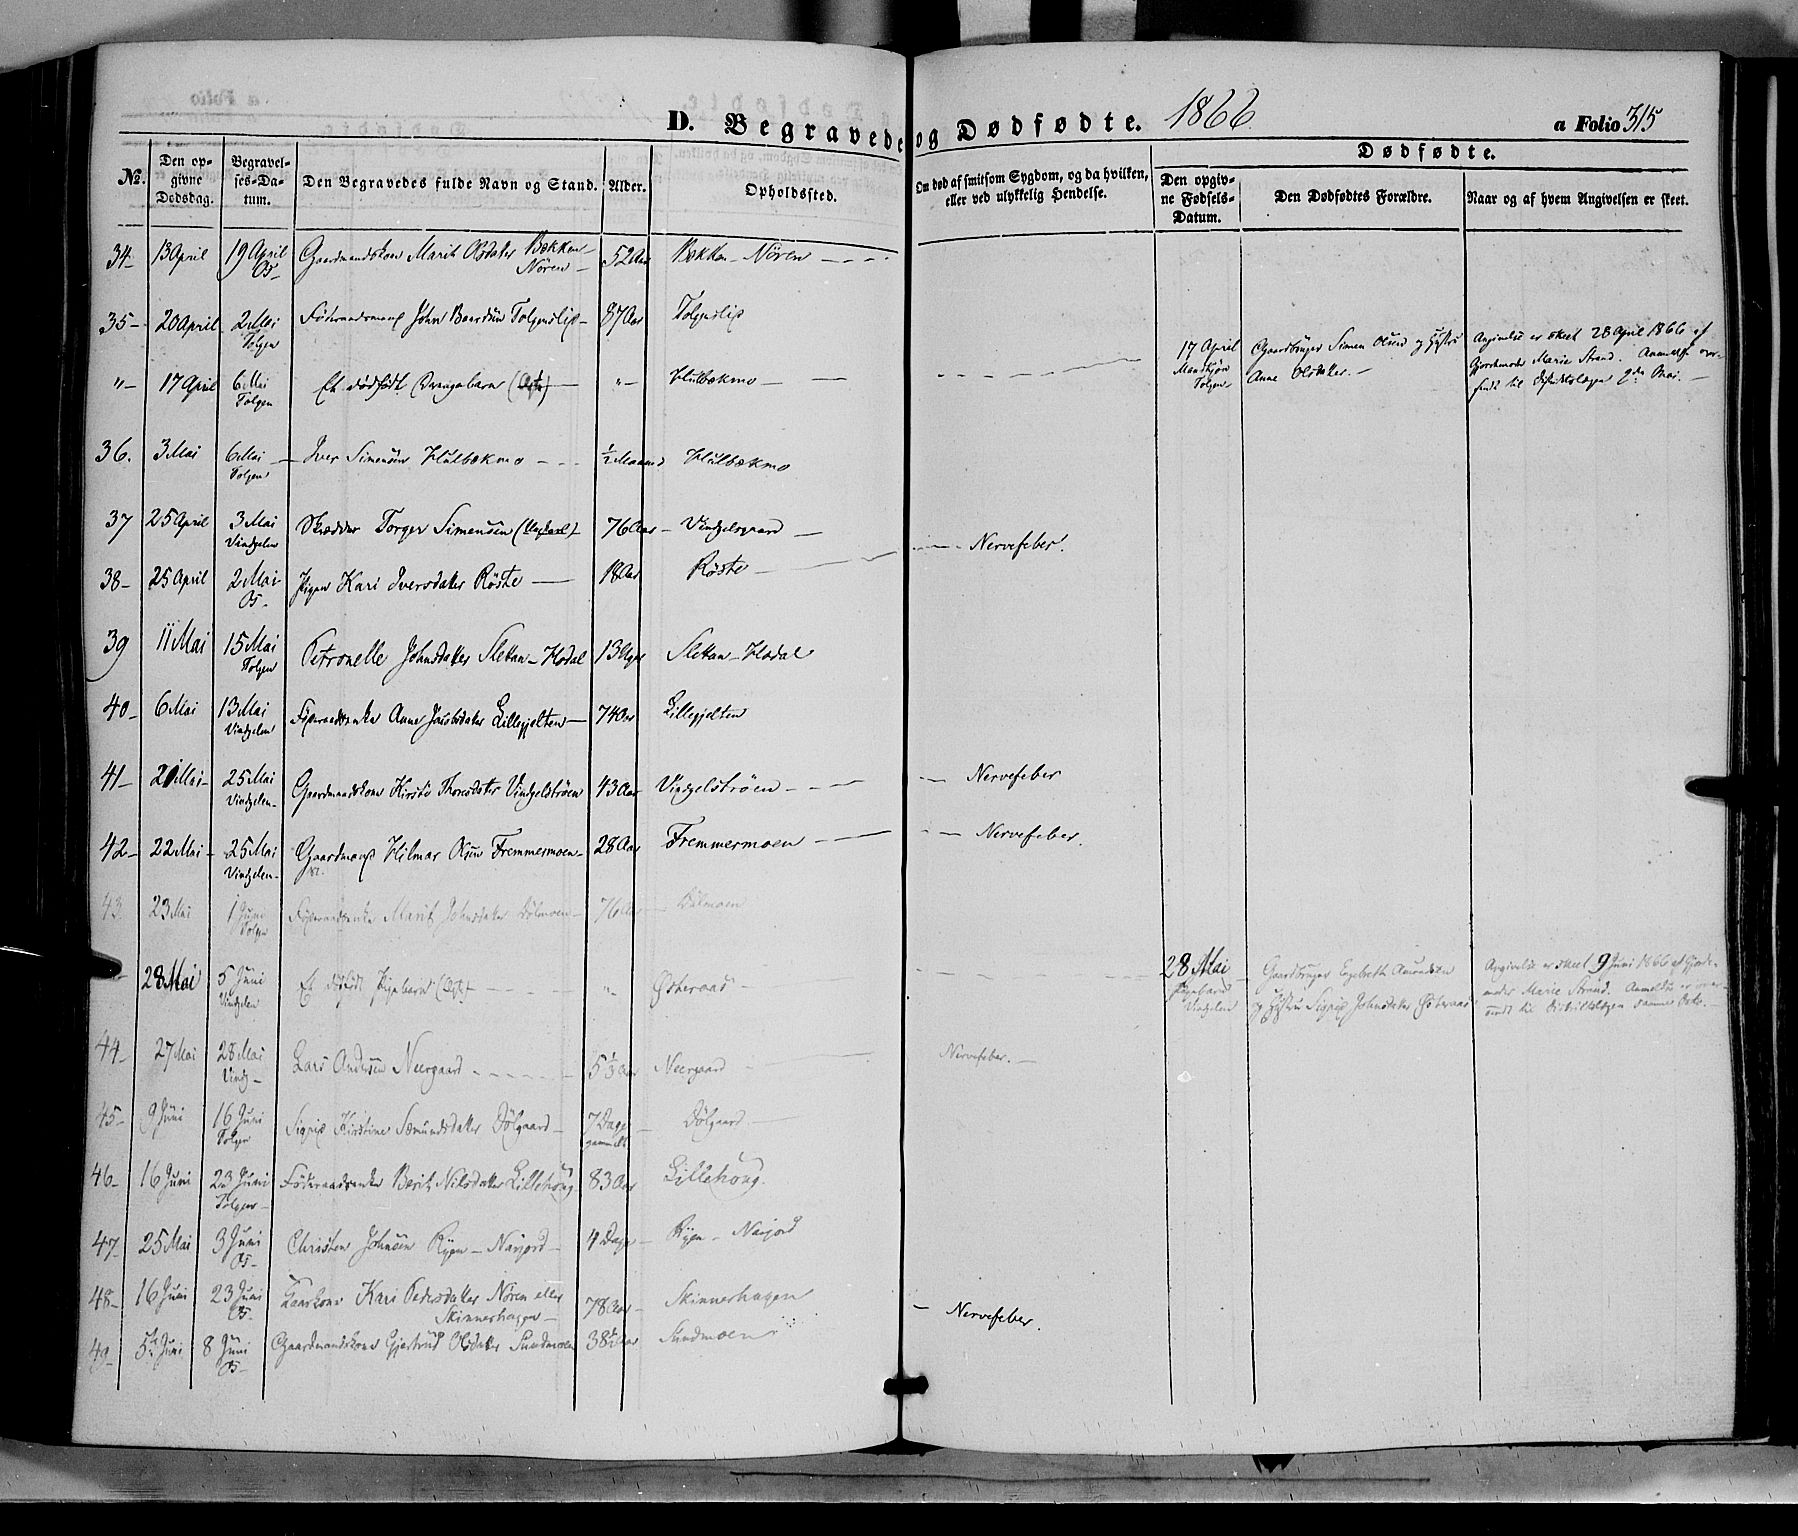 D. Begravede og Dødfødte. 1866. a Folio 315
No. | Den opgivne Dødsdag. | Begravelses-Datum. | Den Begravedes fulde Navn og Stand. | Alder. | Opholdssted. | Om død af smitsom Sygdom, og da hvilken, eller ved ulykkelig Hendelse. | Dødfødte. | Den opgivne Fødsels-Datum. | Den Dødfødtes Forældre. | Naar og af hvem Angivelsen er skeet.
34- 13 April 19 April Os- Gaardmandskone Marit Olsdatter Bækken-Nören- 52 Aar Bækken-Nören
35- 20 April 2 Mai Tolgen Føderaadsmand John Baardsen Tolgenslip- 87 Aar Tolgenslip
"- 17 April 6 Mai Tolgen Et dødfødt Drengebarn "- Hulbækmo- 17 April Mandkjøn Tolgen Gaardbruger Simen Olsen og Hustru Anne Olsdatter.- Angivelse er skeet 28 April 1866 af Gjordemoder Marie Strand. Anmeldt til Distriktslægen Mai.-
36. 3 Mai 6 Mai Tolgen Iver Simensen Hulbækmo - - - 1/2 Maaned Hulbækmo
37 25 April 3 Mai Vindgelen Skrædder Torger Simensen 76 Aar- Vindgelsgaard
38- 25 April 2 Mai Os- Pigen Kari Iversdatter Röste 18 Aar Röste - Nervefeber.
39 11 Mai 15 Mai Tolgen Petronelle Johnsdatter Sletten-Hodal 13 Aar Sletten-Hodal
40- 6 Mai 13 Mai Vindgelen Føderaadsenke Anne Jacobsdatter Lillegjelten- 74 Aar Lillegjelten
41- 21 Mai- 25 Mai Vindgelen- Gaardmandskone Kirsti Thoresdatter Vindgelströen 43 Aar Vindgelströen - - - Nervefeber
42- 22 Mai- 25 Mai Vindgelen- Gaardmand Hilmar Olsen Fremmermoen- 28 Aar Fremmermoen - - - Nervefeber.
43. 23 Mai 1 Juni Tolgen Føderaadsenke Marit Johnsdatter Dölmoen- 76 Aar Dölmoen
28 Mai 5 Juni Vindgelen Et dødfødt Pigebarn "- Østeraas- 28 Mai Pigebarn Vindgelen Gaardbruger Engebreth Amundsen og Hustru Sigrid Johnsdatter Østeraas Angivelse er skeet 9 Juni 1866 af Gjordemoder Marie Strand. Anmeldse er oversendt til Distriktslægen samme Dato.-
44- 27 Mai 28 Mai Vindg- Lars Andersen Neergaard - - - 5 1/2 Aar Neergaard - Nervefeber.-
45- 9 Juni 16 Juni Tolgen Sigrid Kirstine Sæmundsdatter Dölgaard- 7 Dage gammelt Dölgaard
46- 16 Juni 23 Juni Tolgen- Føderaadsenke Berit Nilsdatter Lillehoug- 83 Aar Lillehoug.
47- 25 Mai 3 Juni Os- Christen Johnsen Ryen-Narjord- 4 Dage- Ryen-Narjord
48- 16 Juni 23 Juni Os- Kaarkone Kari Pedersdatter Nören eller Skinnerhagen- 78 Aar- Skinnerhagen - Nervefeber.
49- 5te Juni 8 Juni Os- Gaardmandskone Gjertrud Olsdatter Sundmoen 38 1/2 Aar Sundmoen